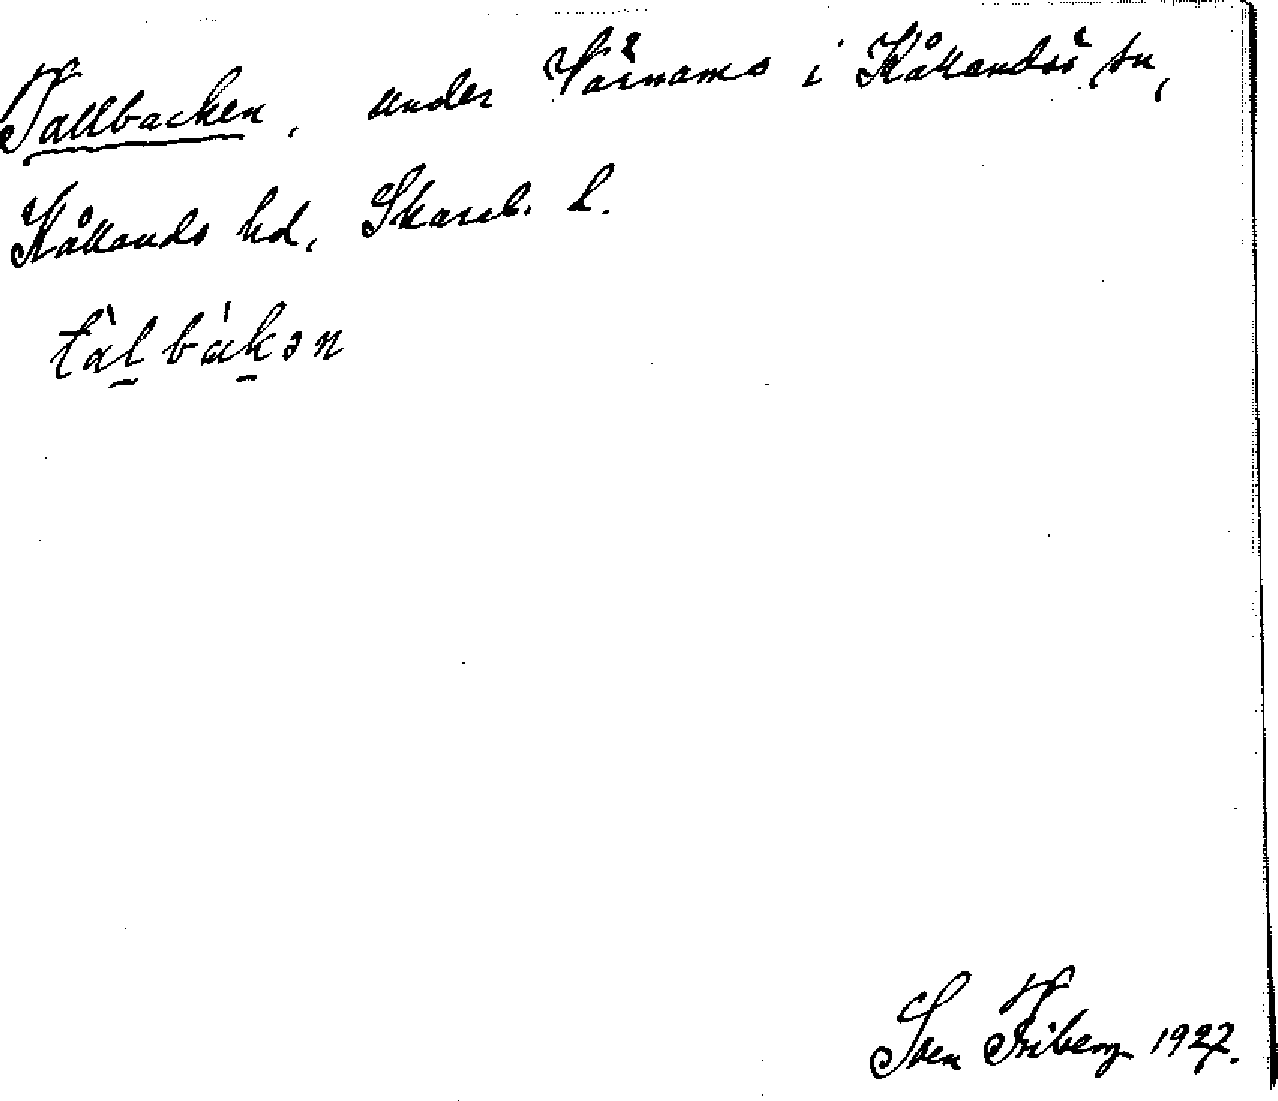 Tallbacken, under Värnams i Kållandsö sn,
Kållands hd, Skarab. l.
tàlbákən
Sven Friberg 1927.